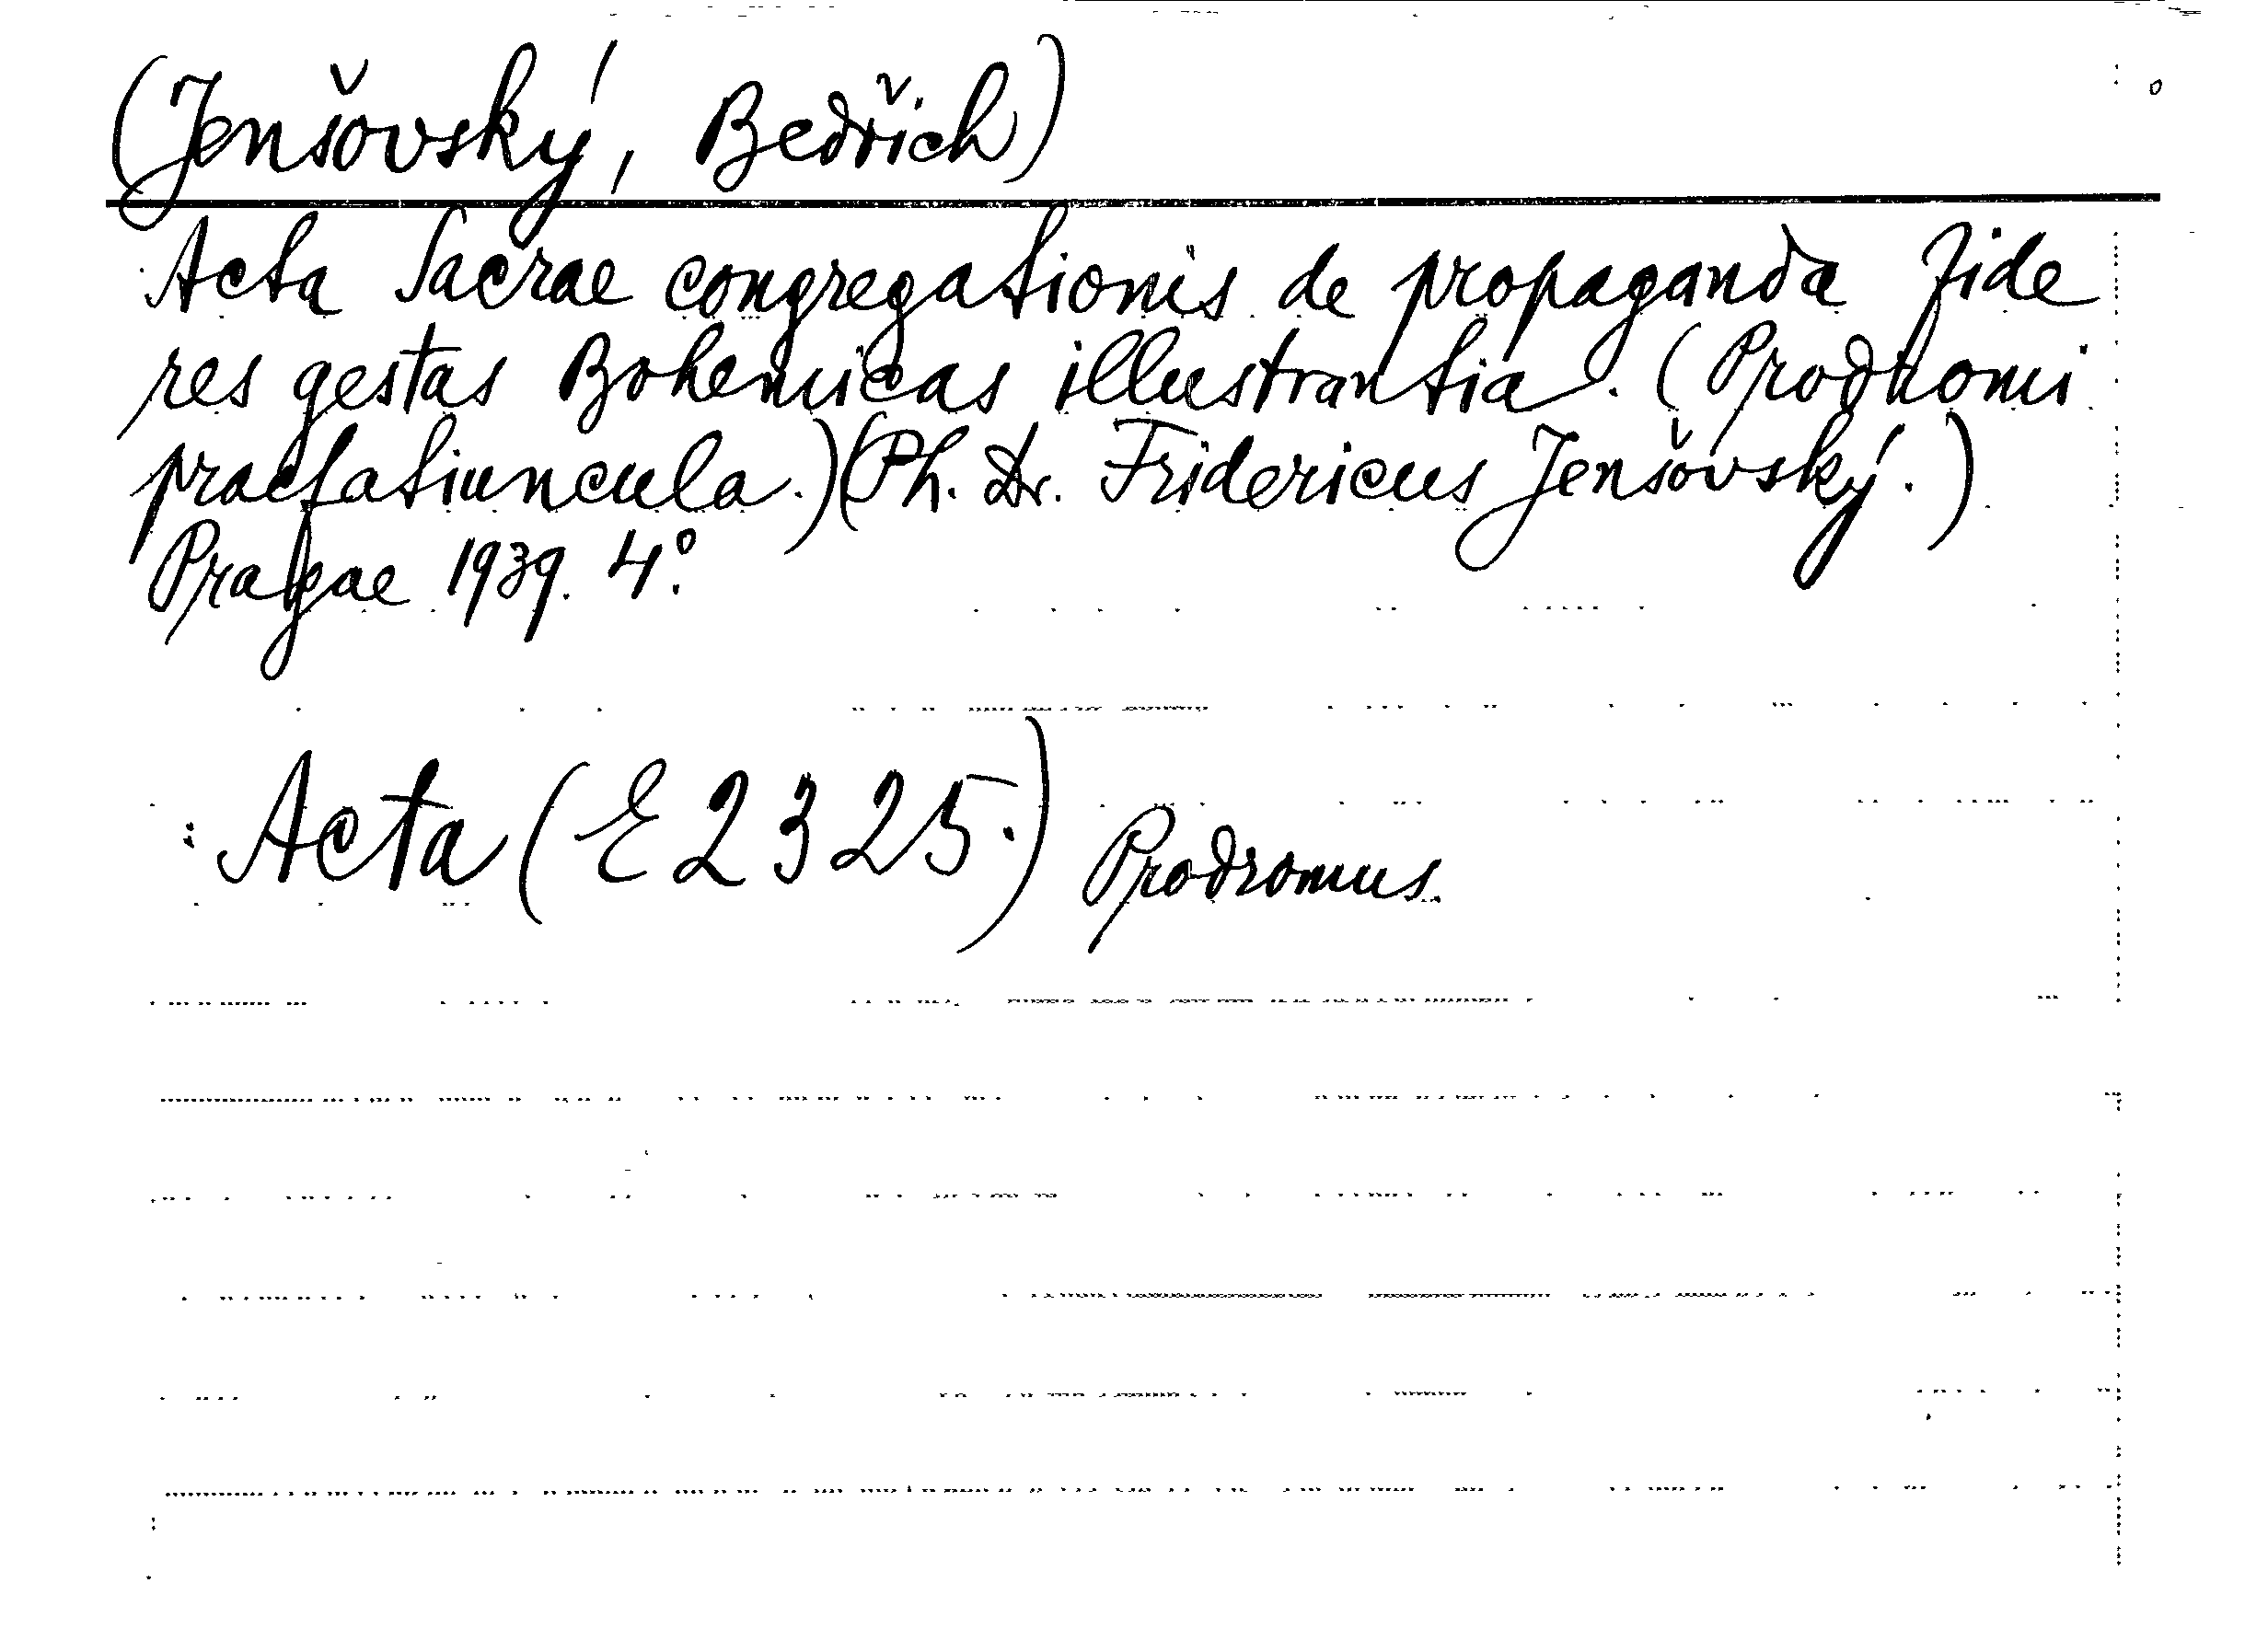 (Jenšovský, Bedřich)
Acta Sacrae congregationis de propaganda fide
res gestas Bohemicas illustrantia. (Prodromi
praefatiuncula.) (Ph. Dr. Fridericus Jenšovský.)
Pragae 1939. 4°.
Acta (E 2325.) Prodromus.